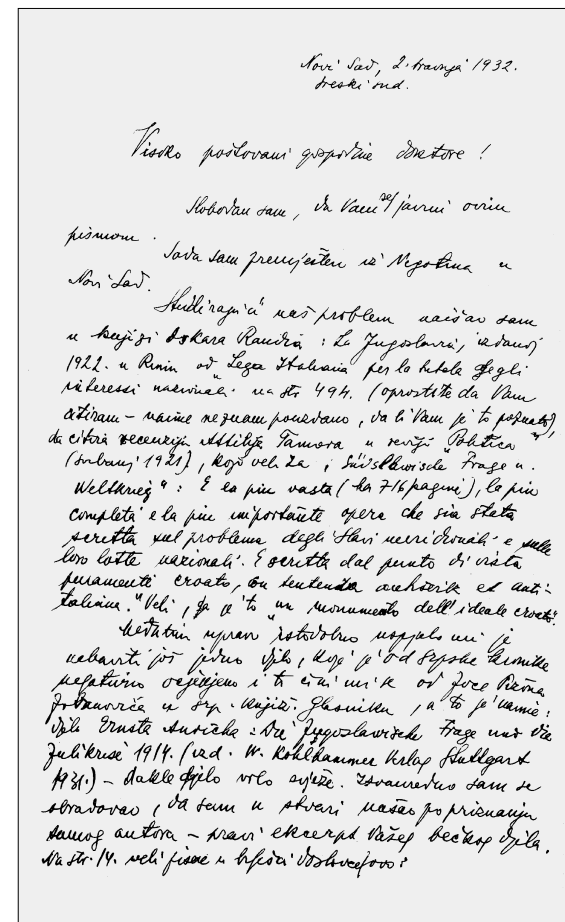 Novi Sad, 2. travnja 1932.
sreski sud.
Visoko poštovani gospodine doktore!
Slobodan sam, da Vam se javim ovim
pismom.
Sada sam premješten iz Negotina u
Novi Sad.
Studirajući naš problem naišao sam
u knjizi Oskara Randia: La Jugoslavia, izdanoj
1922. u Rimu od „Lega Italiana per la tutela degli
interessi nazionali" na str. 494. (oprostite da Vam
citiram – naime ne znam pouzdano, da li Vam je to poznato),
da citira recenziju Attilija Tamara u reviji „Politica"
(svibanj 1921), koji veli za „Südslawische Frage u.
Weltkrieg": È la più vasta (ha 716 pagine), la più
completa e la più importante opera che sia stata
scritta sul problema degli Slavi meridionali e sulle
loro lotte nazionali. È scritta dal punto di vista
puramente croato, con et anti-
italiana." Veli, da je to „un monumento dell'ideale croato".
Međutim upravo istodobno uspjelo mi je
nabaviti još jedno djelo, koje je od srpske kronike
negativno ocijenjeno i to čini mi se od Joce
Jovanovića u Srp. Knjiž. Glasniku, a to je naime:
djelo Ernsta Anricha: Die Jugoslawische Frage und die
Julikrise 1914. (izd. W. Kohlhammer Verlag Stuttgart
1931.) – dakle djelo vrlo svježe. Izvanredno sam se
obradovao, da sam u stvari našao po priznanju
samog autora – pravi ekscerpt Vašeg bečkog djela.
Na str. 14. veli pisac u bilješci doslovce ovo: